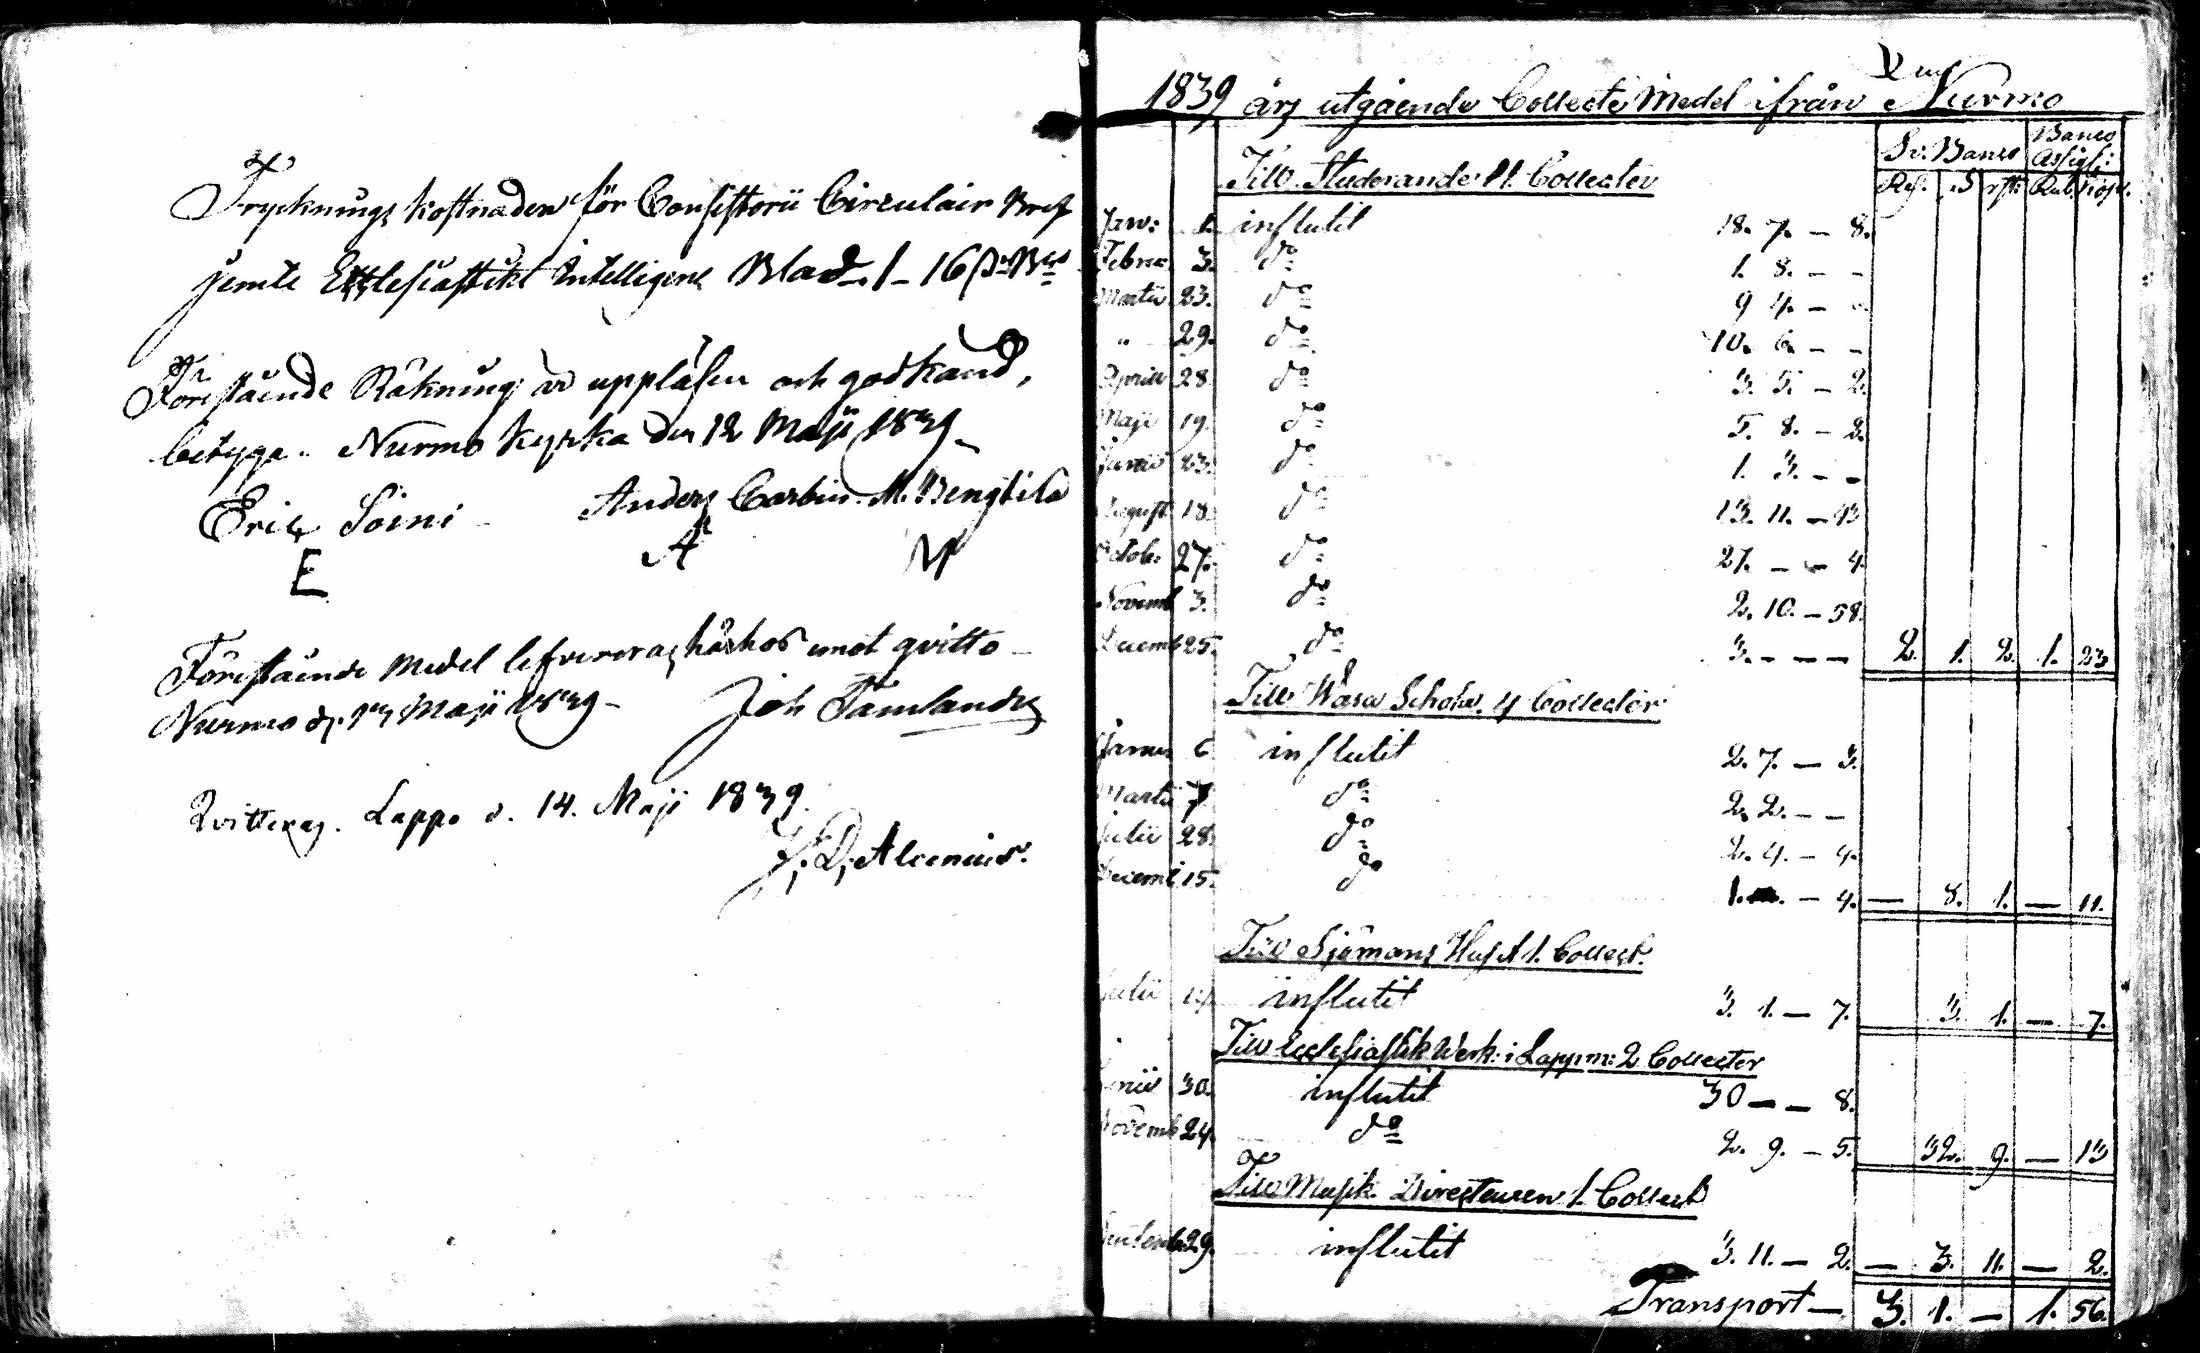 Tryckningskostnaden för Consistorii Circulair Bref
jemte Ecklesiastikt Intelligens Blad. 1 - 16
Förestående Räkning är uppläsen och godkänd,
betyga. Nurmo kyrka den 12 Maji 1839.
Erik Soini - Anders Carbin. M. Bengtila
E A M
Förestående medel lefvereras härhos emot qvitto -
Nurmo d. Maji 1839 - Joh Tamlander
Qvitteras. Lappo d. 14. Maji 1839.
J. D. Alcenius.
1839 års utgående Collecte Medel ifrån Nurmo
Sv: Banco Banco Assign:
Till Studerande 11. Collecter
Rd. S rst: Rub. Kop.
Janu: 1. influtit 18. 7. — 8.
Febru: 3. do 1. 8. — -
Martii 23. do 9 4. — -
" 29. do 10. 6. — -
Aprill 28 do 3. 5. — 2.
Maji 19. do 5. 8. — 2.
Junii 23. do 1. 3. — -
August 18. do 13. 11. — 43
Octob: 27. do 27. — — 4.
Novemb 3. do 2. 10. — 58.
Decemb 25. do 3. — — — 2. 1. 2. 1. 23
Till Wasa Schola. 4 Collecter
Janu 6 influtit 2. 7. — 3.
Martii 7 do 2. 2. — -
Julii 28. do 2. 4. — 4.
Decemb 15. do 1. — 4. — 8. 1. — 11.
Till Sjömans Huset 1. Collect.
Julii influtit 3. 1. — 7. 3. 1. — 7.
Till Ecclesiastik Werk: i Lappm: 2 Collecter
Junii 30. influtit 30 — — 8.
Novemb 24. do 2. 9. — 5. 32. 9. — 13
Till Musik Directeuren 1. Collect
29. influtit 3. 11. — 2. — 3. 11. — 2.
Transport — 3. 1. — 1. 56.